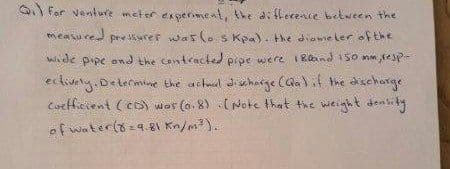 Q1) For venture meter experiment, the difference between the
measured pressures was (0.5 Kpa). the diameter of the
wide pipe and the contracted pipe were 180and 150 mm,resp-
ectively, Determine the actual discharge (Qa) if the discharge
Coefficient (CD) was (0.8) . (Note that the weight density
of water (γ=9.81 Kn/m³).